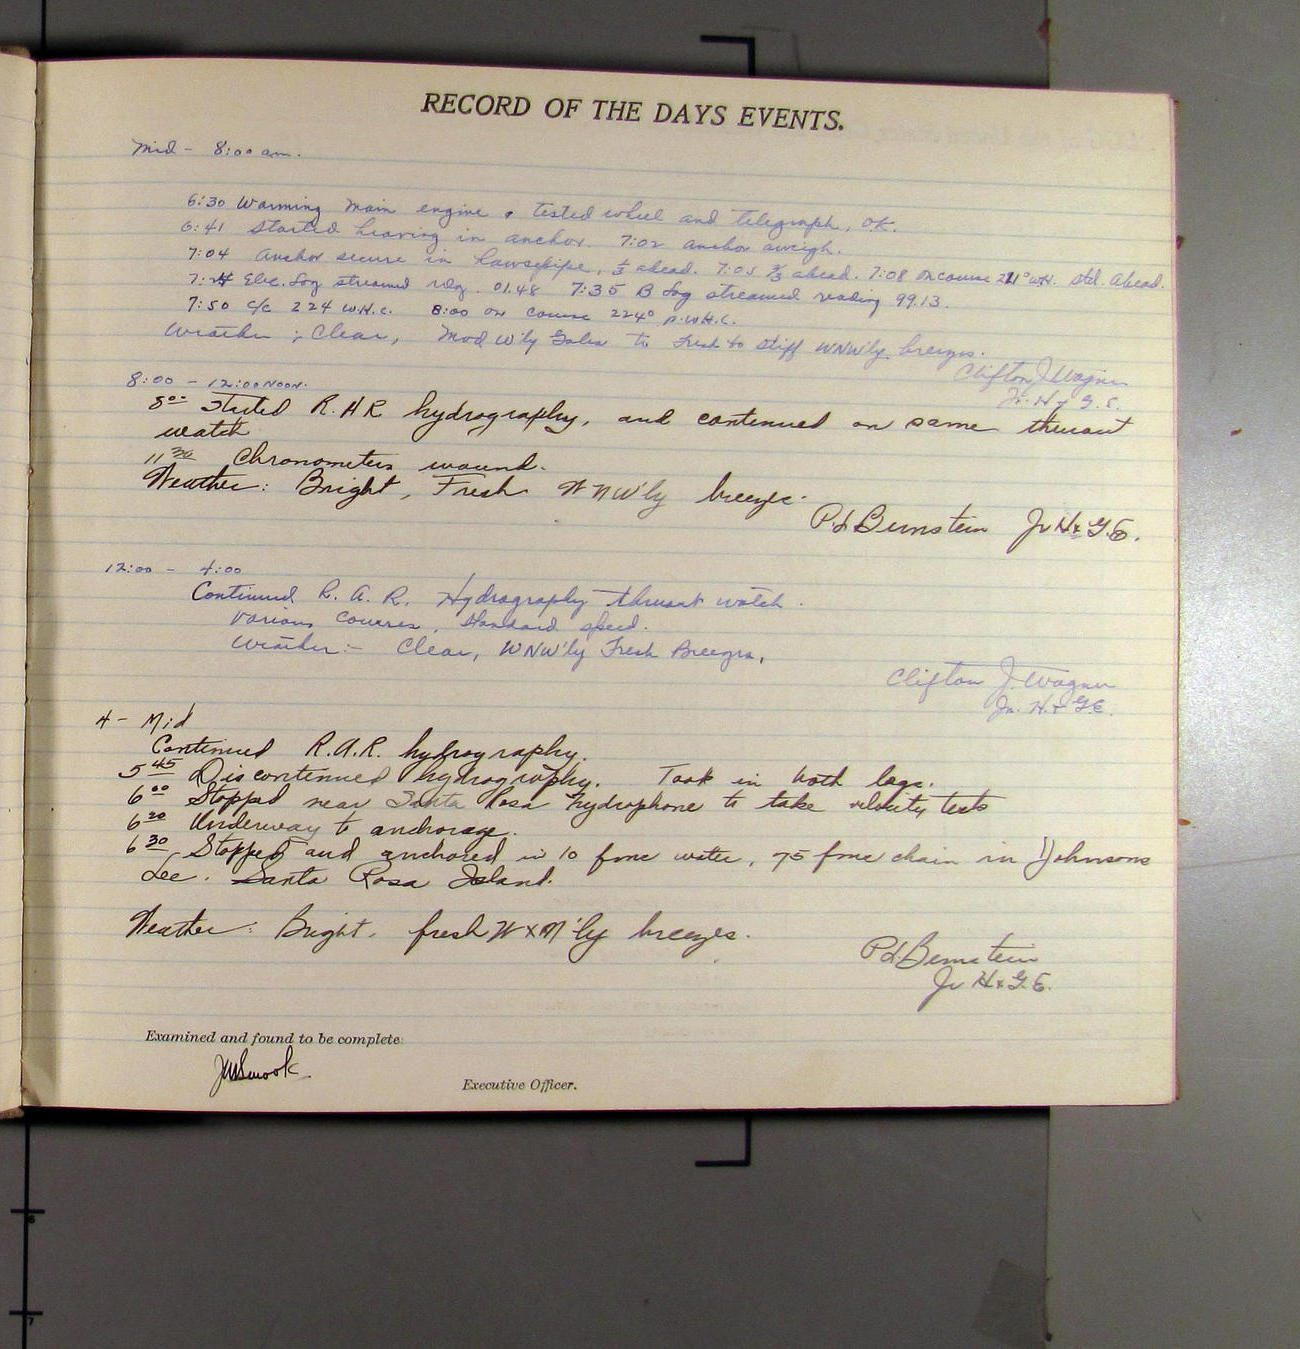 RECORD OF THE DAYS EVENTS.
Mid - 8:00 am.
6:30 Warming main engine, tested wheel and telegraph, OK.
6:41 Started heaving in anchor. 7:02 anchor aweigh.
7:04 Anchor secure in hawsepipe, 1/3 ahead. 7:05 2/3 ahead. 7:08 on course WH. Std. Ahead.
Elec. Log streamed rdg. 01.48 7:35 B Log streamed reading 99.13.
7:50 c/c 224 W.H.C. 8:00 on course 224° p.W.H.C.
Weather ; Clear, Mod W'ly Gales to Fresh to stiff WNW'ly breezes.
Clifton J Wagner
Jr. H & G. E.
8:00 - 12:00 NOON.
8⁰⁰ Started R.A.R. hydrography, and continued on same thruout
watch
11³⁰ Chronometers wound.
Weather: Bright, Fresh WNW'ly breeze.
P.L. Bernstein Jr H & G.E.
12:00 - 4:00
Continued R. A. R. Hydrography thruout watch.
Various Courses, Standard speed.
Weather:- Clear, WNW'ly Fresh Breezes,
Clifton J. Wagner
Jr. H. & G.E.
4 - Mid
Continued R.A.R. hydrography.
5⁴⁵ Discontinued hydrography. Took in both logs.
6⁰⁰ Stopped near Santa Rosa hydrophone to take velocity tests
6²⁰ Underway to anchorage.
6³⁰ Stopped and anchored in 10 fms water, 75 fms chain in Johnsons
Lee. Santa Rosa Island.
Weather: Bright, fresh WxN'ly breezes.
P.L. Bernstein
Jr H & G.E.
Examined and found to be complete:
JM Smook
Executive Officer.
6
7